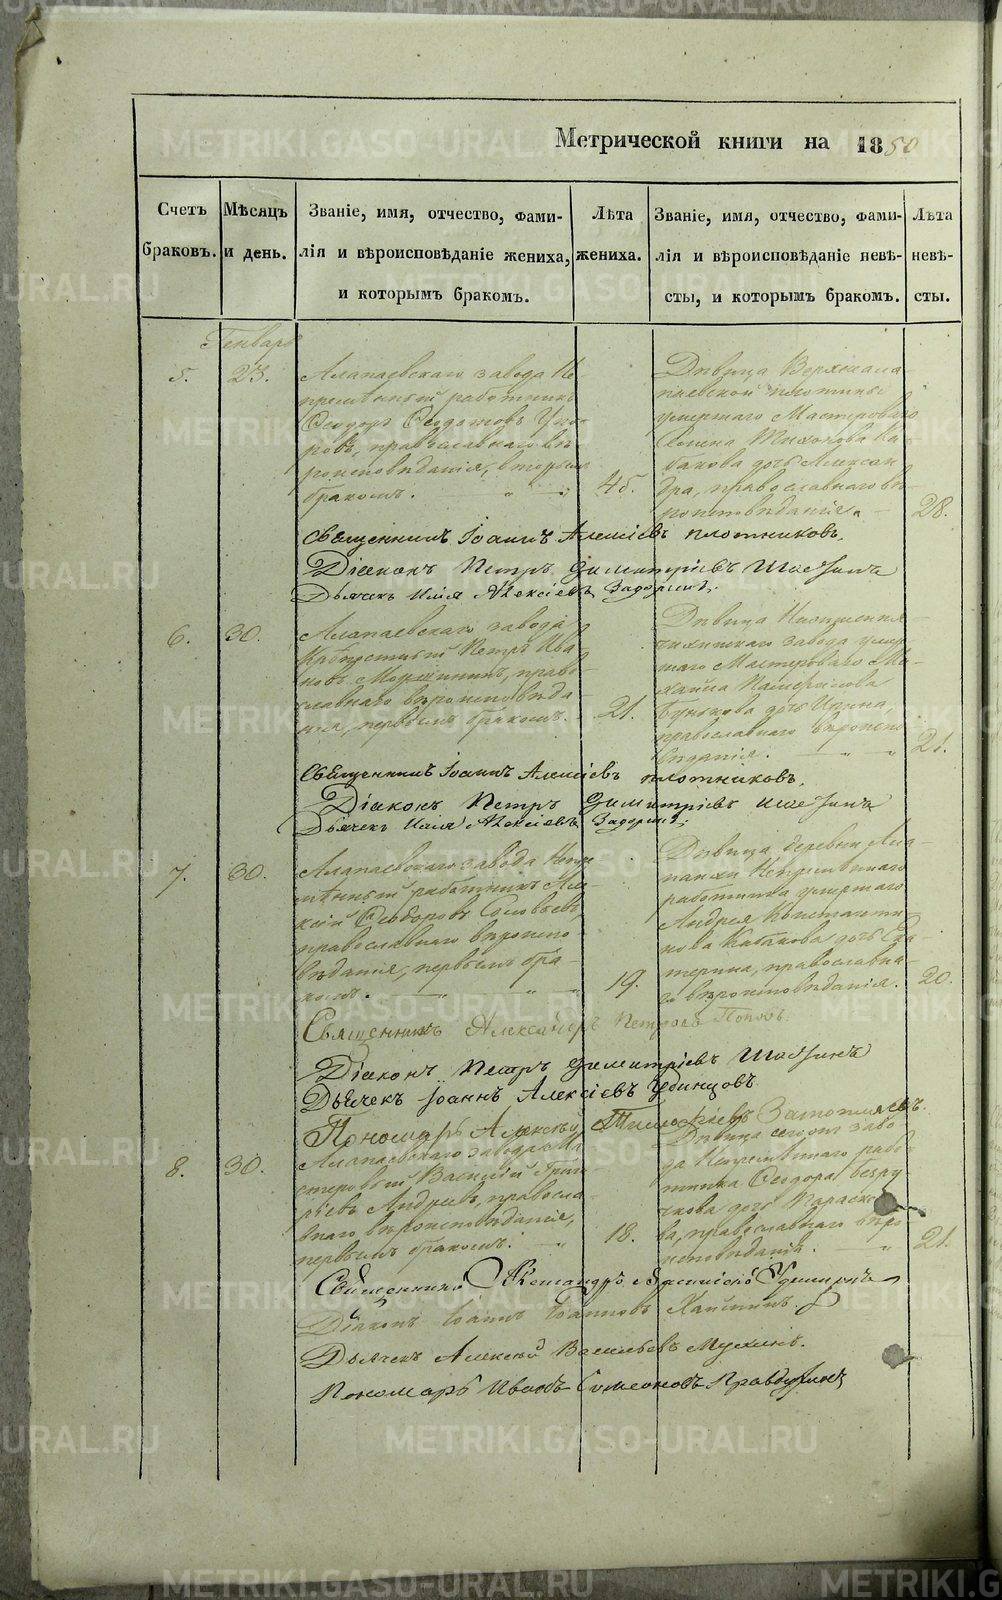 Метрической книги на 1850
Счетъ браковъ.
Мѣсяцъ и день.
Званіе, имя, отчество, фами-
лія и вѣроисповѣданіе жениха,
и которымъ бракомъ.
Лѣта
жениха.
Званіе, имя, отчество, фами-
лія и вѣроисповѣданіе невѣ-
сты, и которымъ бракомъ.
Лѣта
невѣ-
сты.
Генварь
5.
23.
Алапаевскаго завода Не
премѣнный работникъ
Ѳеодоръ Ѳедотовъ
ровъ, православнаго вѣ
роисповѣданія, вторымъ
бракомъ.
45.
Дѣвица Верхнеала-
паевской плотины
умершаго Мастероваго
Тихонова Ка
бакова дочь Алексан
дра, православнаго вѣ-
роисповѣданія.
28.
Священникъ Іоаннъ Алексіевъ Плотниковъ.
Діаконъ Петръ Димитріевъ
Дьячекъ Илія Алексіевъ Задоринъ.
6.
30.
Алапаевскаго завода
Крѣпостный Петръ Ива
новъ Моршининъ, право
славнаго вѣроисповѣда
нія, первымъ бракомъ.
21.
Дѣвица Нейвошай-
танскаго завода умер
шаго Мастероваго Ми
хаила
Бунькова дочь Ирина,
православнаго вѣроиспо
вѣданія.
21.
Священникъ Іоаннъ Алексіевъ Плотниковъ.
Діаконъ Петръ Димитріевъ
Дьячекъ Илія Алексіевъ Задоринъ.
7.
30.
Алапаевскаго завода Непре
мѣнный работникъ Але
ксій Ѳеодоровъ Соловьевъ,
православнаго вѣроиспо
вѣданія, первымъ бра-
комъ.
19.
Дѣвица, деревни Ала-
паихи Непремѣннаго
работника умершаго
Андрея Константи
нова Кабакова дочь Ека
терина, православна-
го вѣроисповѣданія.
20.
Священникъ Александръ Петровъ Поповъ.
Діаконъ Петръ Димитріевъ
Дьячекъ Іоаннъ Алексіевъ Удинцовъ.
Пономарь Алексѣй Тимоѳіевъ Затопляевъ.
8.
30.
Алапаевскаго завода Ма
стеровый Василій Григо
рьевъ Андреевъ, правосла
внаго вѣроисповѣданія,
первымъ бракомъ.
18.
Дѣвица сего заво
да Непремѣннаго рабо
тника Ѳеодора Безру
чкова дочь Параске
ва, православнаго вѣро
исповѣданія.
21.
Священникъ Александръ
Діаконъ Іоаннъ Іоанновъ
Дьячекъ Алексѣй Васильевъ
Пономарь Иванъ Симеоновъ Правдухинъ
METRIKI.GASO-URAL.RU